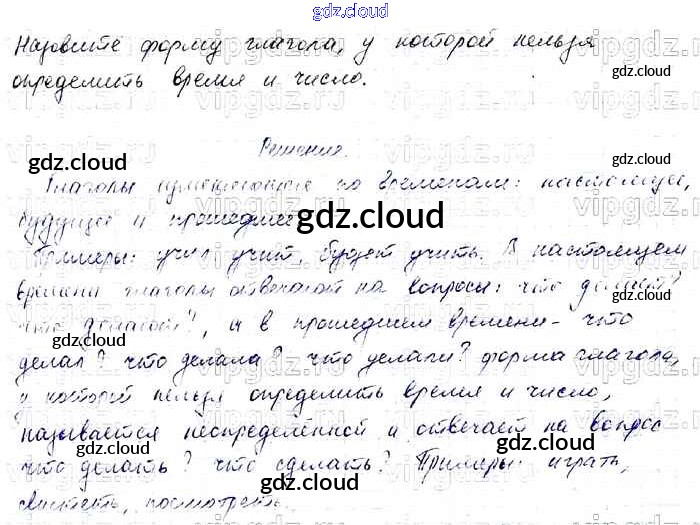 gdz.cloud
Назовите форму глагола, у которой нельзя
определить время и число.
Решение.
Глаголы изменяются по временам: настоящее,
будущее и прошедшее
Примеры: учил, учит, будет учить. В настоящем
времени глаголы отвечают на вопросы: что делает?
что делают?, а в прошедшем времени - что
делал? что делала? что делали? форма глагола,
у которой нельзя определить время и число,
называется неопределённой и отвечает на вопрос
что делать? что сделать? Примеры: играть,
свистеть, посмотреть.
gdz.cloud
gdz.cloud
gdz.cloud
gdz.cloud
gdz.cloud
gdz.cloud
gdz.cloud
gdz.cloud
gdz.cloud
gdz.cloud